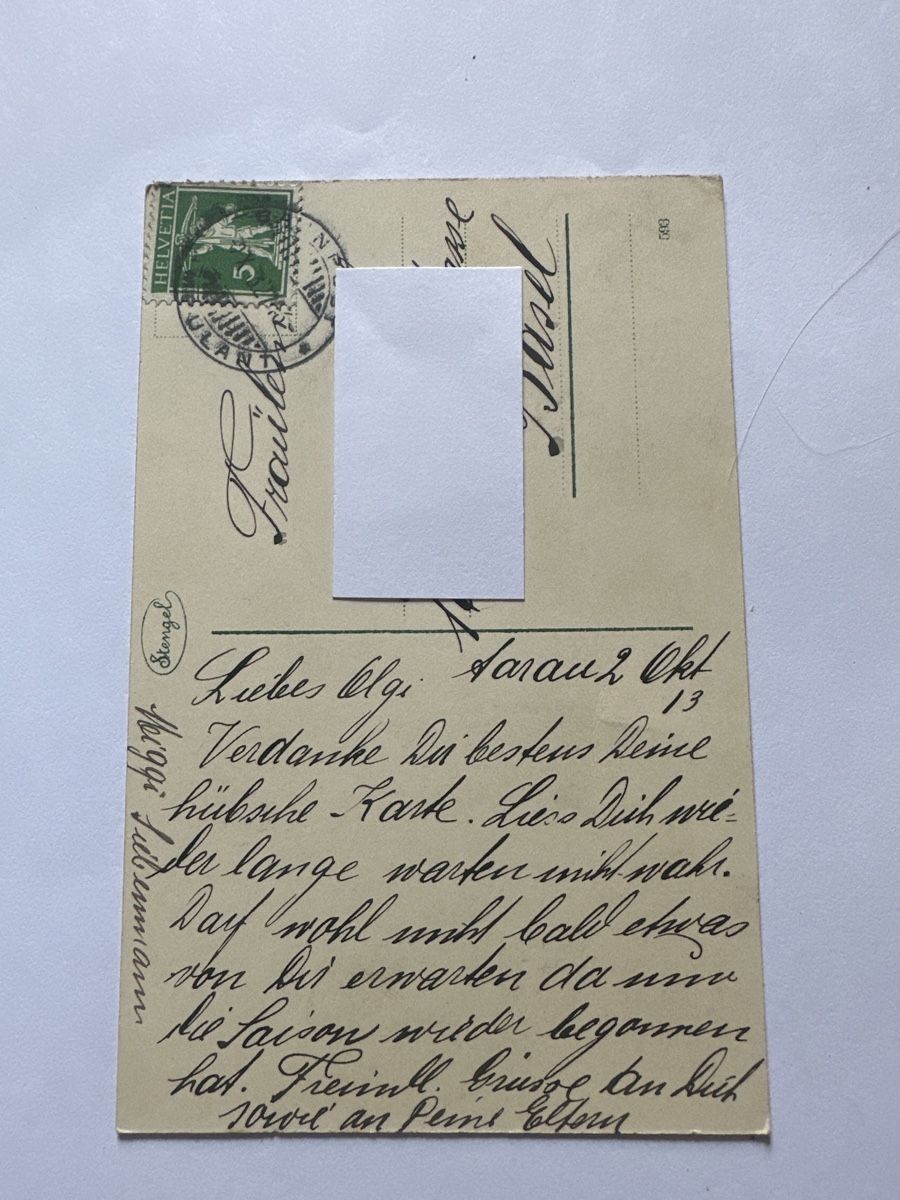 HELVETIA
5
AMBULANT
Fräulein
Basel
593
Stengel
Liebes Olgi. Aarau 2 Okt
13
Verdanke Dir bestens Deine
hübsche Karte. Liess Dich wie=
der lange warten nicht wahr.
Darf wohl nicht bald etwas
von Dir erwarten da nun
die Saison wieder begonnen
hat. Freundl. Grüsse an Dich
sowie an Deine Eltern
Siebenmann